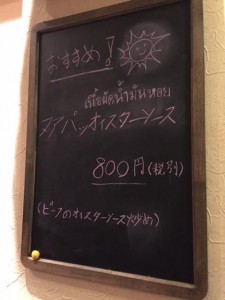 おすすめ!
เนื้อผัดน้ำมันหอย
ヌアパッオイスターソース
800円(税別)
(ビーフのオイスターソース炒め)